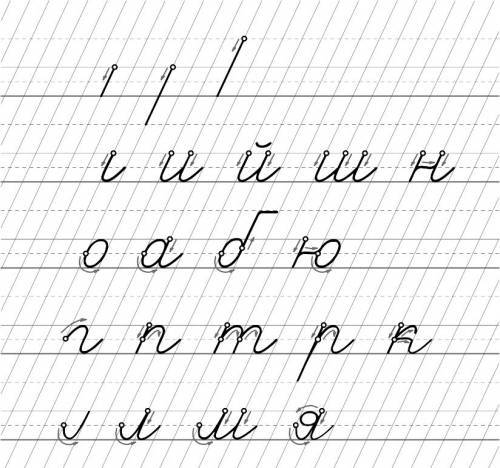 и й ш н
о а б ю
г п т р к
л м я